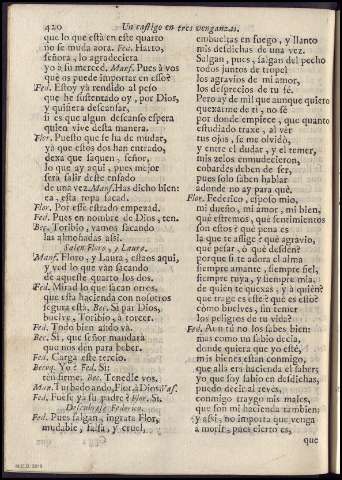 420
Un castigo en tres venganzas,
que lo que està en este quarto
no se muda aora. Fed. Harto,
señora, lo agradeciera
yo à su merced. Manf. Pues à vos
què os puede importar en esso?
Fed. Estoy yà rendido al peso
que he sustentado oy, por Dios,
y quisiera descansar,
si es que algun descanso espera
quien vive desta manera.
Flor. Puesto que se ha de mudar,
yà que estos dos han entrado,
dexa que saquen, señor,
lo que ay aqui, pues mejor
serà salir deste enfado
de una vez. Manf. Has dicho bien:
ea, esta ropa sacad.
Flor. Por este estrado empezad.
Fed. Pues en nombre de Dios, ten.
Bec. Toribio, vamos sacando
las almohadas assi.
Salen Floro, y Laura.
Manf. Floro, y Laura, estaos aqui,
y ved lo que vàn sacando
de aqueste quarto los dos.
Fed. Mirad lo que sacan otros,
que esta hacienda con nosotros
segura està. Bec. Sì par Dios,
buelve, Toribio, à torcer.
Fed. Todo bien atado và.
Bec. Sì, que señor mandarà
que nos dèn para beber.
Fed. Carga este tercio.
Becoq. Yo? Fed. Sì:
ten firme. Bec. Tenedle vos.
Man. Turbado ando, Flor, à Dios. Vas.
Fed. Fuese yà su padre? Flor. Sì.
Descubrese Federico.
Fed. Pues salgan, ingrata Flor,
mudable, falsa, y cruel,
embueltas en fuego, y llanto
mis desdichas de una vez.
Salgan, pues, salgan del pecho
todos juntos de tropel
los agravios de mi amor,
los desprecios de tu fè.
Pero ay de mi! que aunque quiero
quexarme de ti, no sè
por donde empiece, que quanto
estudiado traxe, al ver
tus ojos, se me olvidò,
y entre el dudar, y el temer,
mis zelos enmudecieron,
cobardes deben de ser,
pues solo saben hablar
adonde no ay para què.
Flor. Federico, esposo mio,
mi dueño, mi amor, mi bien,
què estremos, què sentimientos
son estos? què pena es
la que te aflige? què agravio,
què pesar, ò què desdèn?
porque si te adora el alma
siempre amante, siempre fiel,
siempre tuya, y siempre mia,
de quièn te quexas, y à quièn?
què trage es este? què es esto?
còmo buelves, sin temer
los peligros de tu vida?
Fed. Aun tù no los sabes bien:
mas como un sabio decia,
donde quiera que yo estè,
mis bienes estàn conmigo,
que allà era hacienda el saber;
yo que solo sè en desdichas,
puedo decir al revès,
conmigo traygo mis males,
que son mi hacienda tambien;
y assi, no importa que venga
à morir, pues cierto es,
que